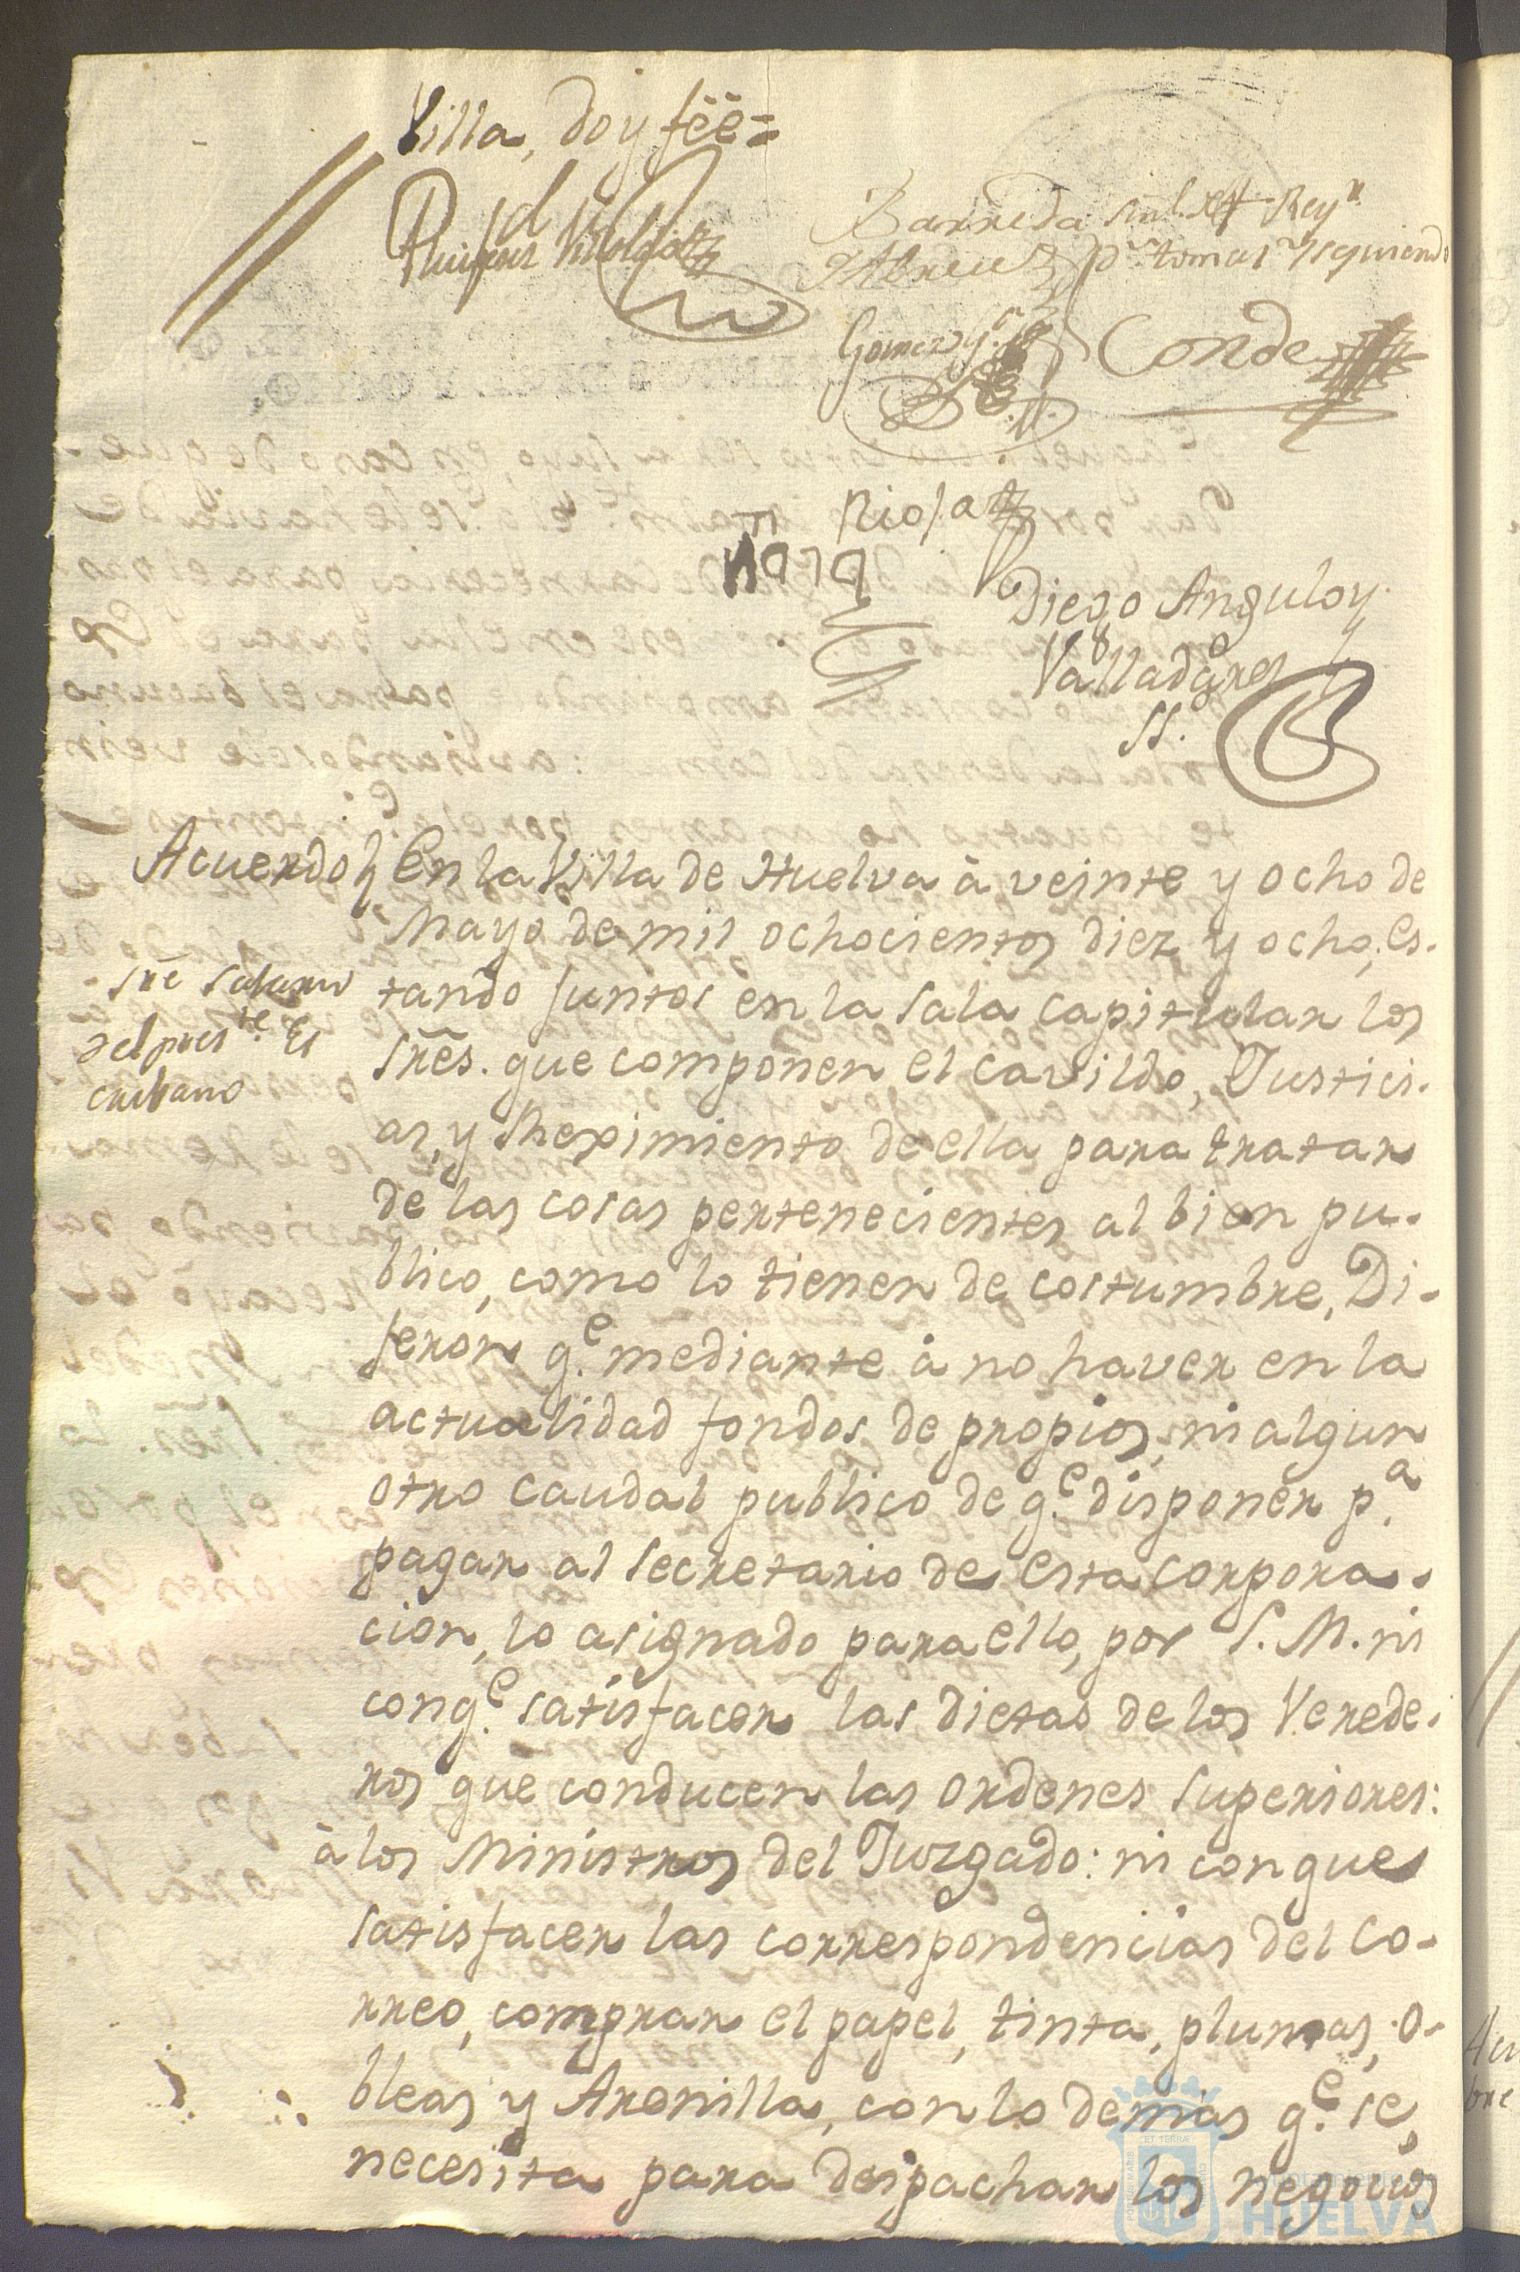 Villa, doy fëë=
Barreda
Abreu
Gomez
Conde
Rioja
Diego Angulo y
Valladares
SS.
Acuerdo En la Villa de Huelva à veinte y ocho de
Mayo de mil ochocientos diez y ocho, es-
tando juntos en la sala capitular los
sre salario
del pres.te Es
cribano
Srẽs. que componen el cavildo, Justici-
as, y Reximiento de ella para tratar
de las cosas pertenecientes al bien pu-
blico, como lo tienen de costumbre, Di-
jeron q.e mediante à no haver en la
actualidad fondos de propios, ni algun
otro caudal publico de q.e disponer p.a
pagar al secretario de esta corpora-
cion, lo asignado para ello, por S. M. ni
con q.e satisfacer las dietas de los Verede-
ros que conducen las ordenes superiores:
à los Ministros del Juzgado: ni con que
satisfacer las correspondencias del co-
rreo, comprar el papel, tinta, plumas, o-
bleas y Arenilla, con lo demas q.e se
necesita para despachar los negocios
HUELVA